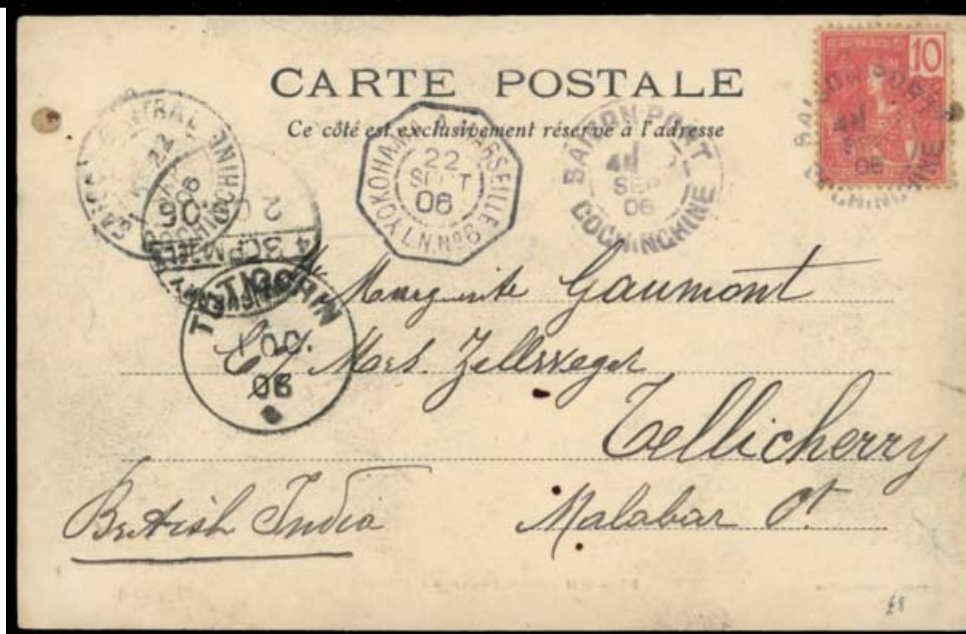 CARTE POSTALE
Ce côté est exclusivement réservé à l'adresse
10
SAIGON CENTRAL
COCHINCHINE
22
06
YOKOHAMA A MARSEILLE
22
SEPT
06
L.N. Nº 6
SAIGON-PORT
SEPT
06
COCHINCHINE
SAIGON PORT
06
TUTICORIN
1 OC.
06
Marguerite Gaumont
C/ Mrs. Zellweger
Tellicherry
British India
Malabar Ct